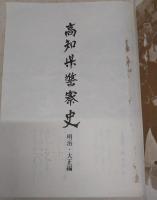 高知県警察史
明治・大正編